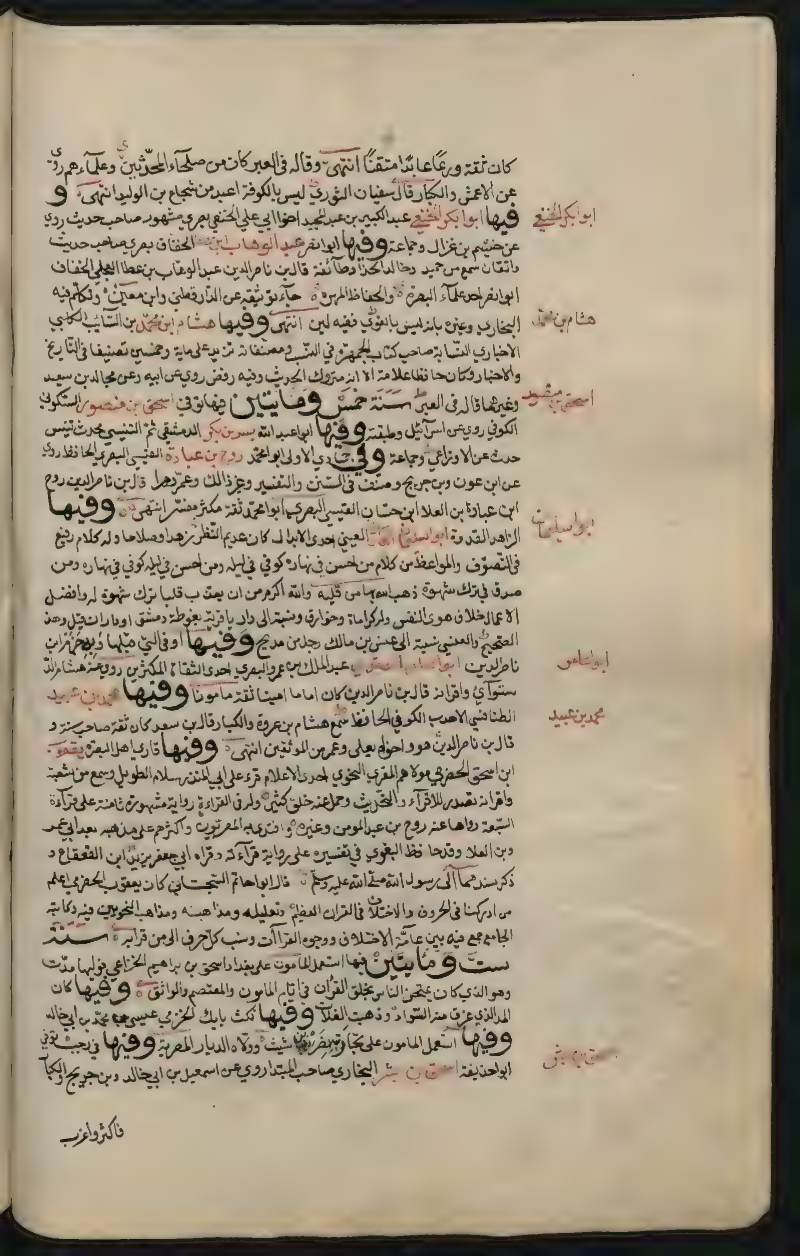 كان ثقة ورعًا عابدًا متقنًا انتهى وقال في العبر كان من صلحاء المحدّثين وعلمآءهم روى
عن الاعمش والكبار قال سفيان الثوري ليس بالكوفة اعبد من شجاع بن الوليد انتهى و
فيها ابو ابكر الحنفي عبد الكبير بن عبد المجيد اخو ابي علي الحنفي بصري مشهور صاحب حديث روى
عن خثيم بن عراك وجماعة وفيها ابو نصر عبد الوهاب بن عطا الخفاف بصري صاحب حديث
واتقان سمع من حميد وخالد الحذا وطآئفة قال بن ناصر الدين عبد الوهاب بن عطا العجلي الخفاف
ابو نصر احد علمآء البصرة والحفاظ المهرة جآء توثيقه عن الدارقطني وابن معين وتكلم فيه
البخاري وغيره بانه ليس بالقوي ففيه لين انتهى وفيها هشام ابن محمد بن السائب الكلبي
الاخباري النسابة صاحب كتاب الجمهرة في النسب ومصنفاته تزيد على ماية وخمسين تصنيفا في التاريخ
والاخبار وكان حافظا علامة الا انه متروك الحديث وفيه رفض روى عن ابيه وعن مجالد بن سعيد
وغيرهما قاله في العبر سنة خمس ومايتين فيها توفي اسحق بن منصور السلولي
الكوفي روى عن اسرآئيل وطبقته وفيها ابو عبد الله بشر بن بكر الدمشقي ثم التنيسي محدث تنيس
حدث عن الاوزاعي وجماعة وفي جمادى الاولى ابو محمد روح بن عبادة القيسي البصري الحافظ روى
عن ابن عون وبن جريج وصنف في السنن والتفسير وغير ذالك وعمّر دهرا قال بن ناصر الدين روح
ابن عبادة بن العلا ابن حسان القيسي البصري ابو محمد ثقة مكثر مفسر انتهى وفيها
الزاهد القدوة ابو سليمان العنسي احد الابدال كان عديم النظير زهدا وصلاحا وله كلام رفيع
في التصوّف والمواعظ من كلامه من احسن في نهاره كوفي في ليله ومن احسن في ليله كوفي في نهاره ومن
صدق في ترك شهوة ذهب الله بها من قلبه والله اكرم من ان يعذب قلبا ترك شهوة له وافضل
الاعمال خلاف هوى النفس وله كرامات وخوارق ونسبته الى داريا قرية بغوطة دمشق
الصحيح والعنسي نسبة الى عنس بن مالك رجل من مذحج وفيها او في التي قبلها
ناصر الدين ابو عامر العقدي عبد الملك بن عمرو البصري احد الثقاة المكثرين روى عن هشام الد
ستوآئي واقرانه قال بن ناصر الدين كان اماما امينا ثقة مأمونا وفيها محمد بن عبيد
الطنافسي الاحدب الكوفي الحافظ سمع هشام بن عروة والكبار قال بن سعد كان ثقة صاحب سنة و
قال بن ناصر الدين هو واخواه يعلى وعمر من الموثقين انتهى وفيها قاري اهل البصرة يعقوب
ابن اسحق الحضرمي مولاهم المقري النحوي احد الاعلام قرء على ابي المنذر سلام الطويل وسمع من شعبة
واقرانه تصدر للاقرآء والتحديث وحمل عنه خلق كثير وله في القراءة رواية مشهورة ثامنة على قرآءة
السبعة رواها عنه روح بن عبد المومن وغيره واقتدى به البصريون واكثرهم على مذهبه بعد ابي عمر
وبن العلا وقد حافظ البغوي في تفسيره على رواية قرآءته وقراءة ابي جعفر يزيد ابن القعقاع و
ذكر سندهما الى رسول الله صلى الله عليه وسلم قال ابو حاتم السجستاني كان يعقوب الحضرمي اعلم
من ادركنا في الحروف والاختلاف في القران العظيم وتعليله ومذاهبه ومذاهب النحويين فيه وكتابه
الجامع جمع فيه بين عامة الاختلاف ووجوه القرآآت ونسب كل حرف الى من قرا به سنة
ست ومايتين فيها استعمل المأمون على بغداد اسحق بن براهيم الخزاعي فوليها مدة
وهو الذي كان يمتحن الناس بخلق القران في ايام المأمون والمعتصم والواثق وفيها كان
المد الذي غرق منه السواد وذهبت الغلات وفيها نكث بابك الخرمي عيسى بن محمد بن ابي خالد
وفيها استعمل المامون على محاربة نصر بن شبث وولاه الديار المصرية وفيها في رجب توفي
ابو حذيفة اسحق بن بشر البخاري صاحب المبتدا روى عن اسمعيل بن ابي خالد وبن جريج والكبار
فاكثر واغرب
ابو ابكر الحنفي
هشام بن محمد
اسحق بن منصور
ابو سليمان
ابو عامر
محمد بن عبيد
اسحق بن بشر